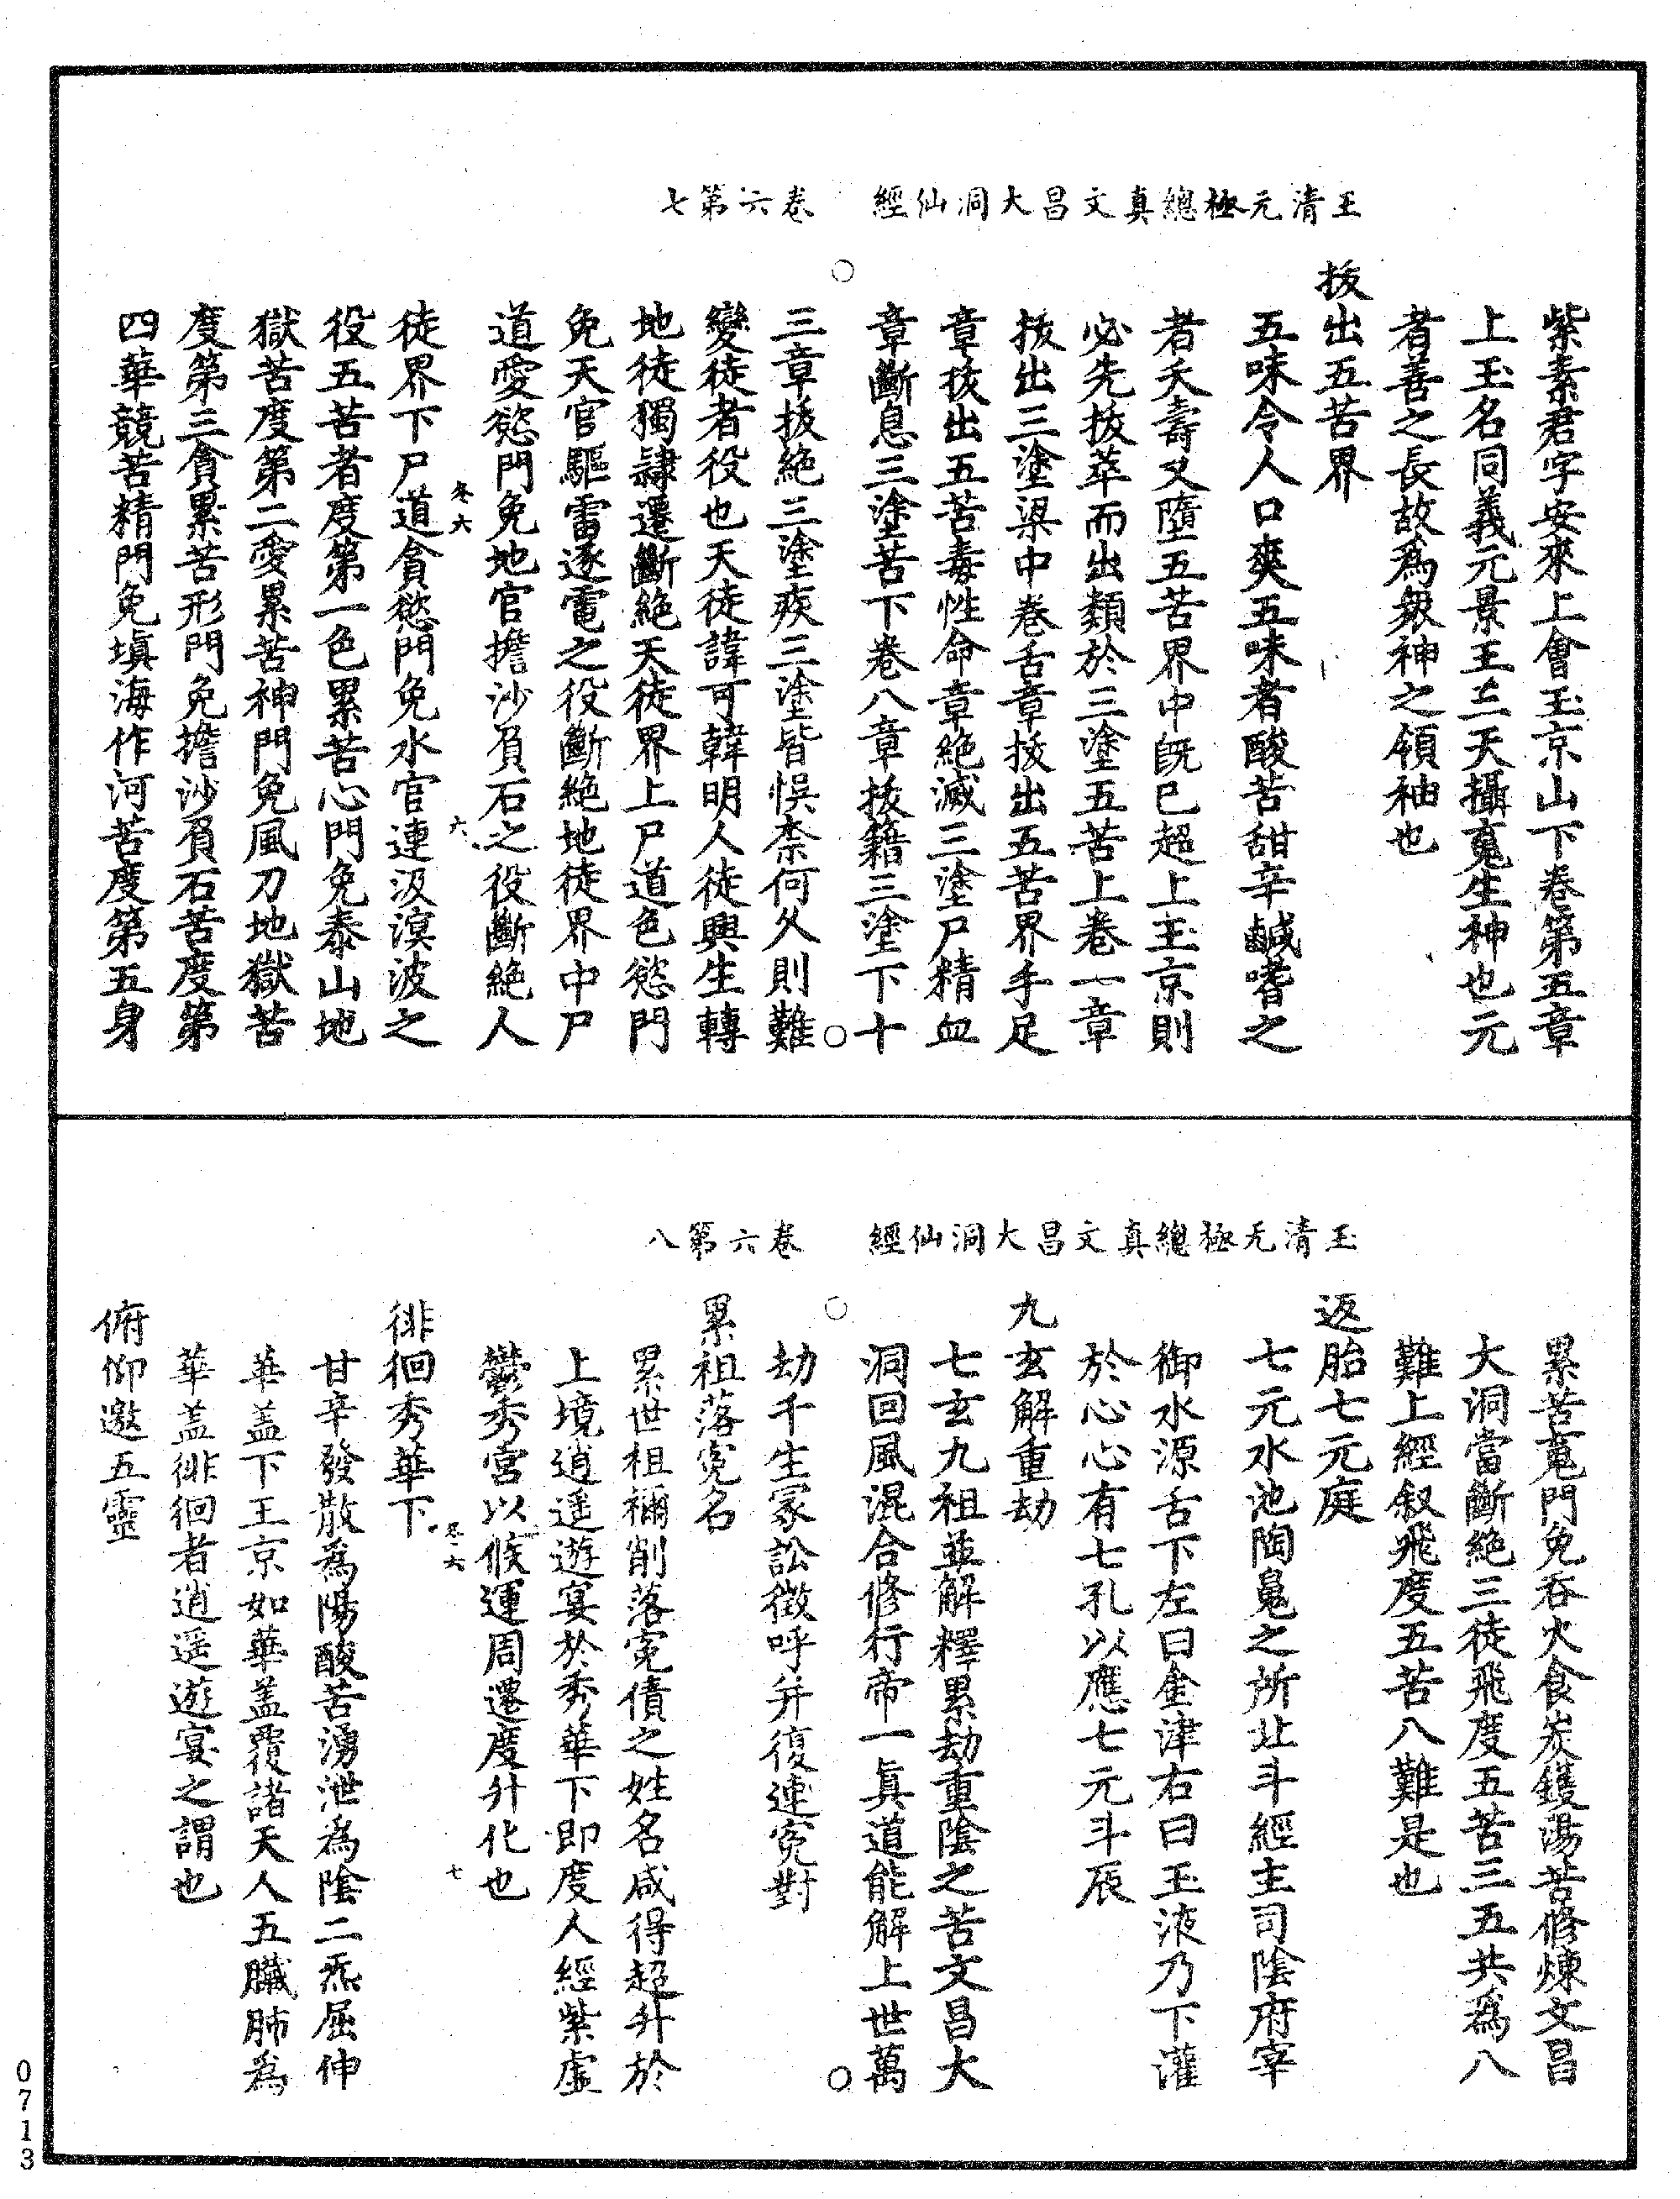 玉清元極總真文昌大洞仙經　卷六第七
紫素君字安來上會玉京山下卷第五章
上玉名同義元景王三天攝䰟生神也元
者善之長故為眾神之領袖也
拔出五苦界
五味令人口爽五味者酸苦甜辛鹹嗜之
者夭壽又墮五苦界中既已超上玉京則
必先拔萃而出類於三塗五苦上卷一章
拔出三塗梁中卷舌章拔出五苦界手足
章拔出五苦毒性命章絶滅三塗尸精血
章斷息三塗苦下卷八章拔籍三塗下十
三章拔絶三塗疾三塗皆悞柰何久則難
變徒者役也天徒諱可韓明人徒興生轉
地徒獨隸遷斷絶天徒界上尸道色慾門
免天官驅雷逐電之役斷絶地徒界中尸
道愛慾門免地官擔沙負石之役斷絶人
卷六
六
徒界下尸道貪慾門免水官連汲溟波之
役五苦者度第一色累苦心門免泰山地
獄苦度第二愛累苦神門免風刀地獄苦
度第三貪累苦形門免擔沙負石苦度第
四華競苦精門免塡海作河苦度第五身
玉清元極總真文昌大洞仙經　卷六第八
累苦䰟門免吞火食炭鑊湯苦修煉文昌
大洞當斷絶三徒飛度五苦三五共為八
難上經叙飛度五苦八難是也
返胎七元庭
七元水池陶䰟之所北斗經主司陰府宰
御水源舌下左曰金津右曰玉液乃下灌
於心心有七孔以應七元斗辰
九玄解重劫
七玄九祖並解釋累劫重陰之苦文昌大
洞回風混合修行帝一眞道能解上世萬
劫千生冢訟徵呼并復連寃對
累祖落寃名
累世祖禰削落寃債之姓名咸得超升於
上境逍遥遊宴於秀華下即度人經紫虛
鬱秀宮以候運周遷度升化也
卷六
七
徘徊秀華下
甘辛發散為陽酸苦湧泄為陰二炁屈伸
華盖下王京如華盖覆諸天人五臟肺為
華盖徘徊者逍遥遊宴之謂也
俯仰邀五靈
0713